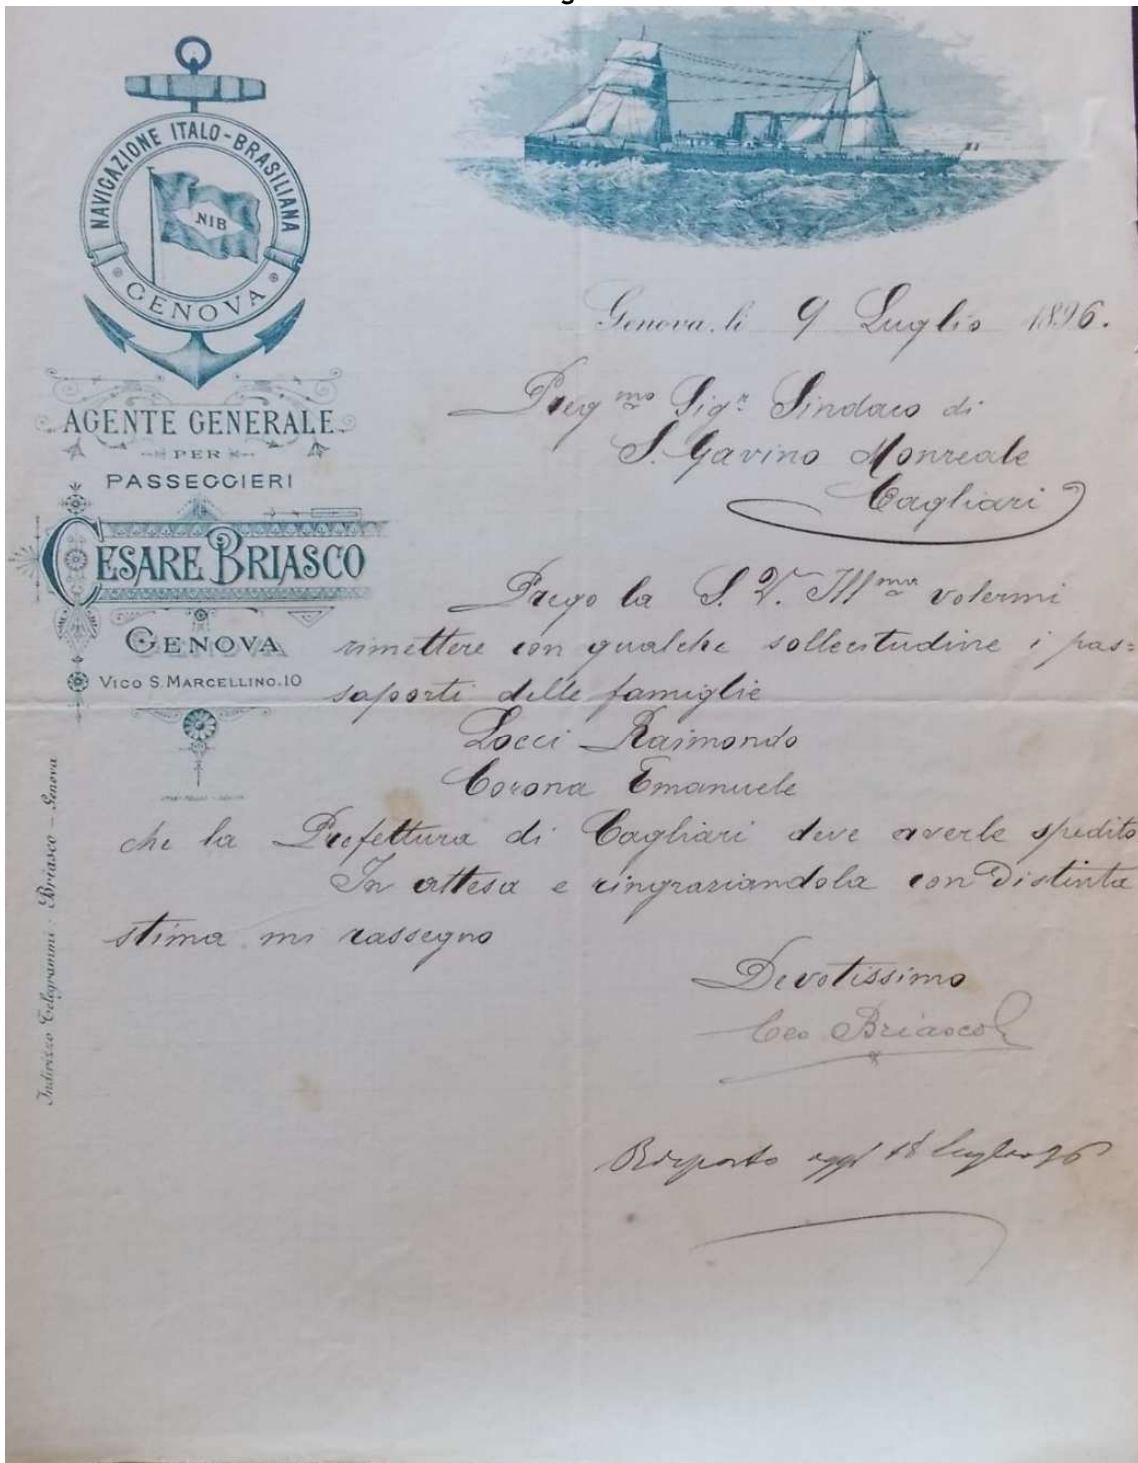 NAVIGAZIONE ITALO-BRASILIANA
NIB
GENOVA
AGENTE GENERALE
PER
PASSEGGIERI
CESARE BRIASCO
GENOVA
VICO S. MARCELLINO. 10
Indirizzo Telegrammi: Briasco - Genova
Genova, li 9 Luglio 1896.
Preg.mo Sig.r Sindaco di
S. Gavino Monreale
Cagliari
Prego la S. V. Ill.ma volermi
rimettere con qualche sollecitudine i pas=
saporti delle famiglie
Locci Raimondo
Corona Emanuele
che la Prefettura di Cagliari deve averle spedito
In attesa e ringraziandola con Distinta
stima mi rassegno
Devotissimo
Ces Briasco
Risposto oggi 18 luglio 96